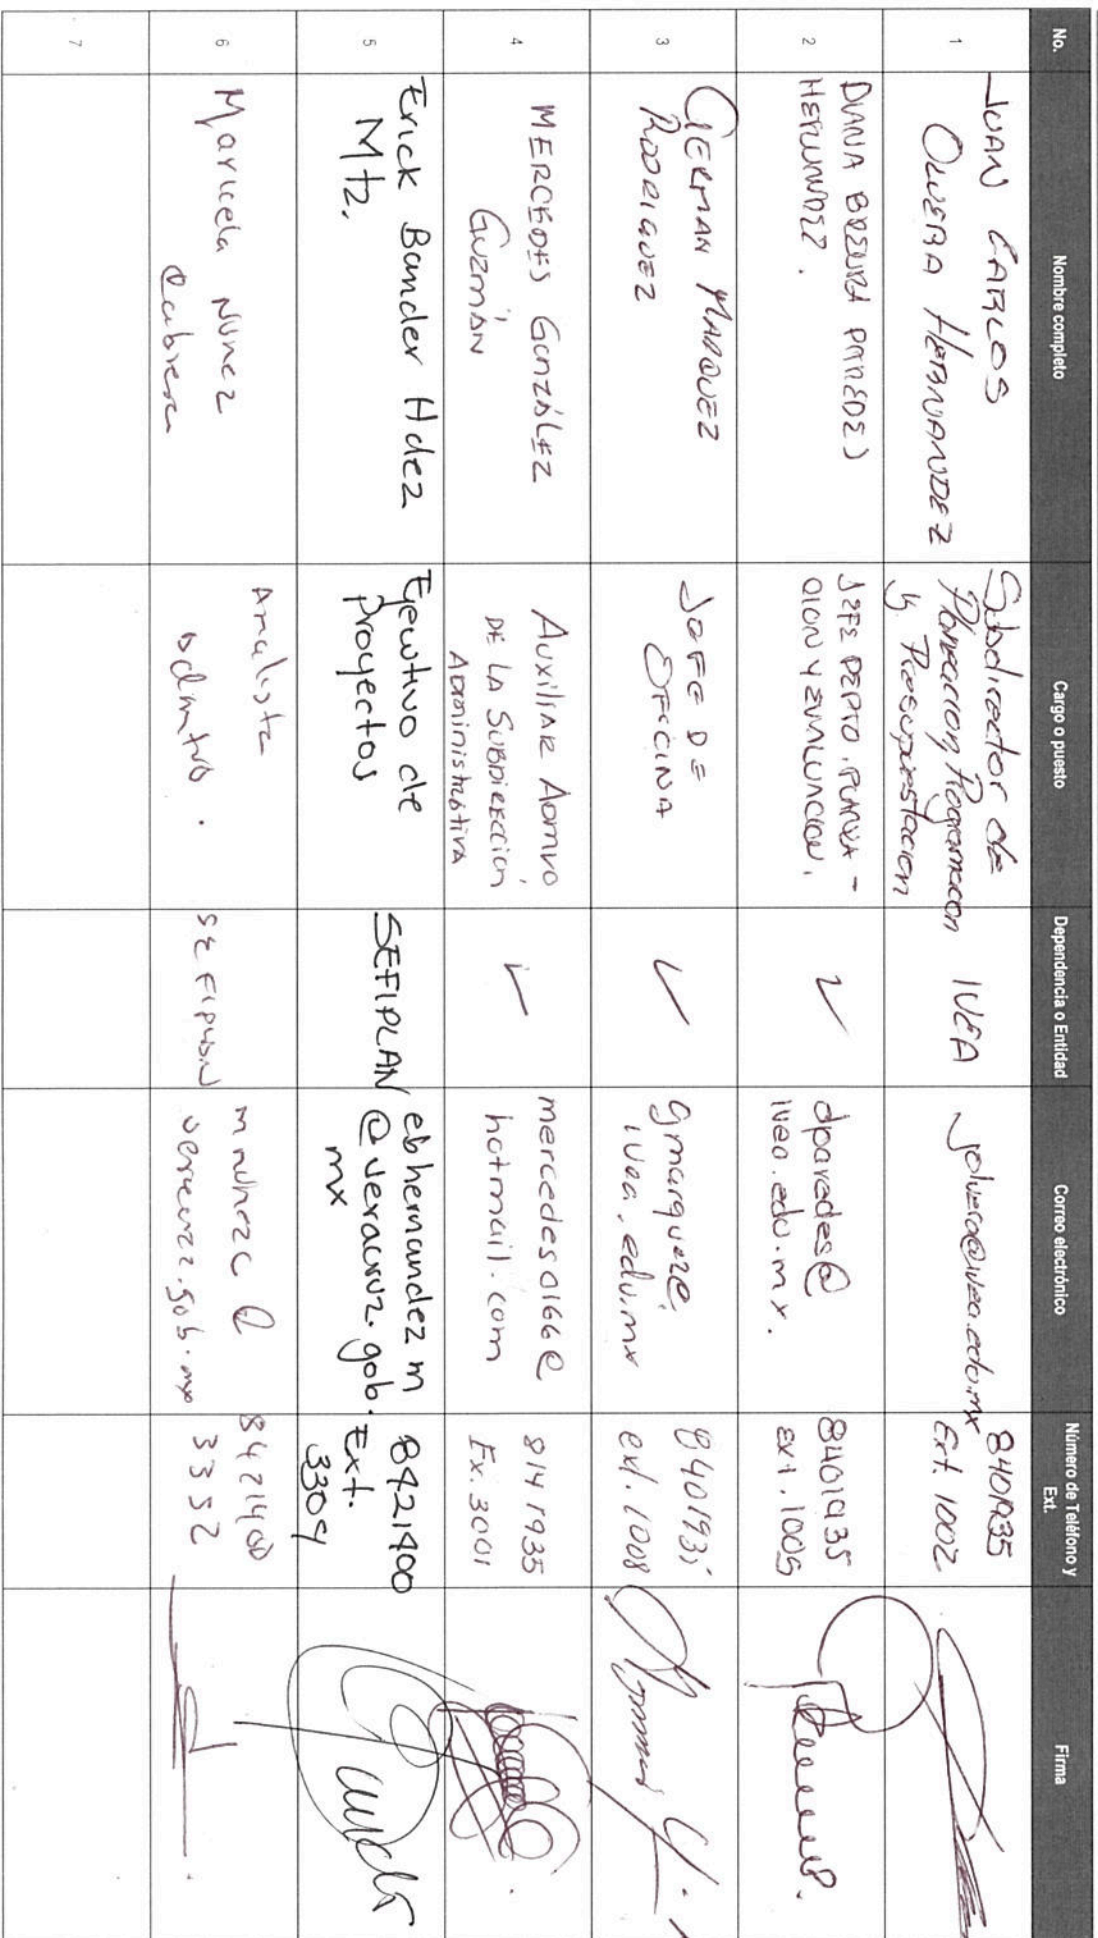 No.
Nombre completo
Cargo o puesto
Dependencia o Entidad
Correo electrónico
Número de Teléfono y
Ext.
Firma
1
JUAN CARLOS
OLIVERA HERNANDEZ
Subdirector de
Planeacion, Programacion
y Presupuestacion
IVEA
jolivera@ivea.edu.mx
8401935
Ext. 1002
2
DIANA BRENDA PAREDES
HERNANDEZ.
JEFE DEPTO. PLANEA-
CION Y EVALUACION.
✓
dparedes@
ivea.edu.mx.
8401935
Ext. 1005
3
GERMAN MARQUEZ
RODRIGUEZ
JEFE DE
OFICINA
✓
gmarquez@
ivea.edu.mx
840193
ext. 1008
4
MERCEDES GONZÁLEZ
GUZMÁN
AUXILIAR ADMVO
DE LA SUBDIRECCIÓN
ADMINISTRATIVA
✓
mercedes0166@
hotmail.com
8141935
Ex. 3001
5
Erick Bander Hdez
Mtz.
Ejecutivo de
Proyectos
SEFIPLAN
ebhernandezm
@veracruz.gob.
mx
8421400
Ext.
3309
6
Maricela Nunez
Cabrera
Analista
Admtvo.
SEFIPLAN
mnunezc@
veracruz.gob.mx
8421400
3352
7